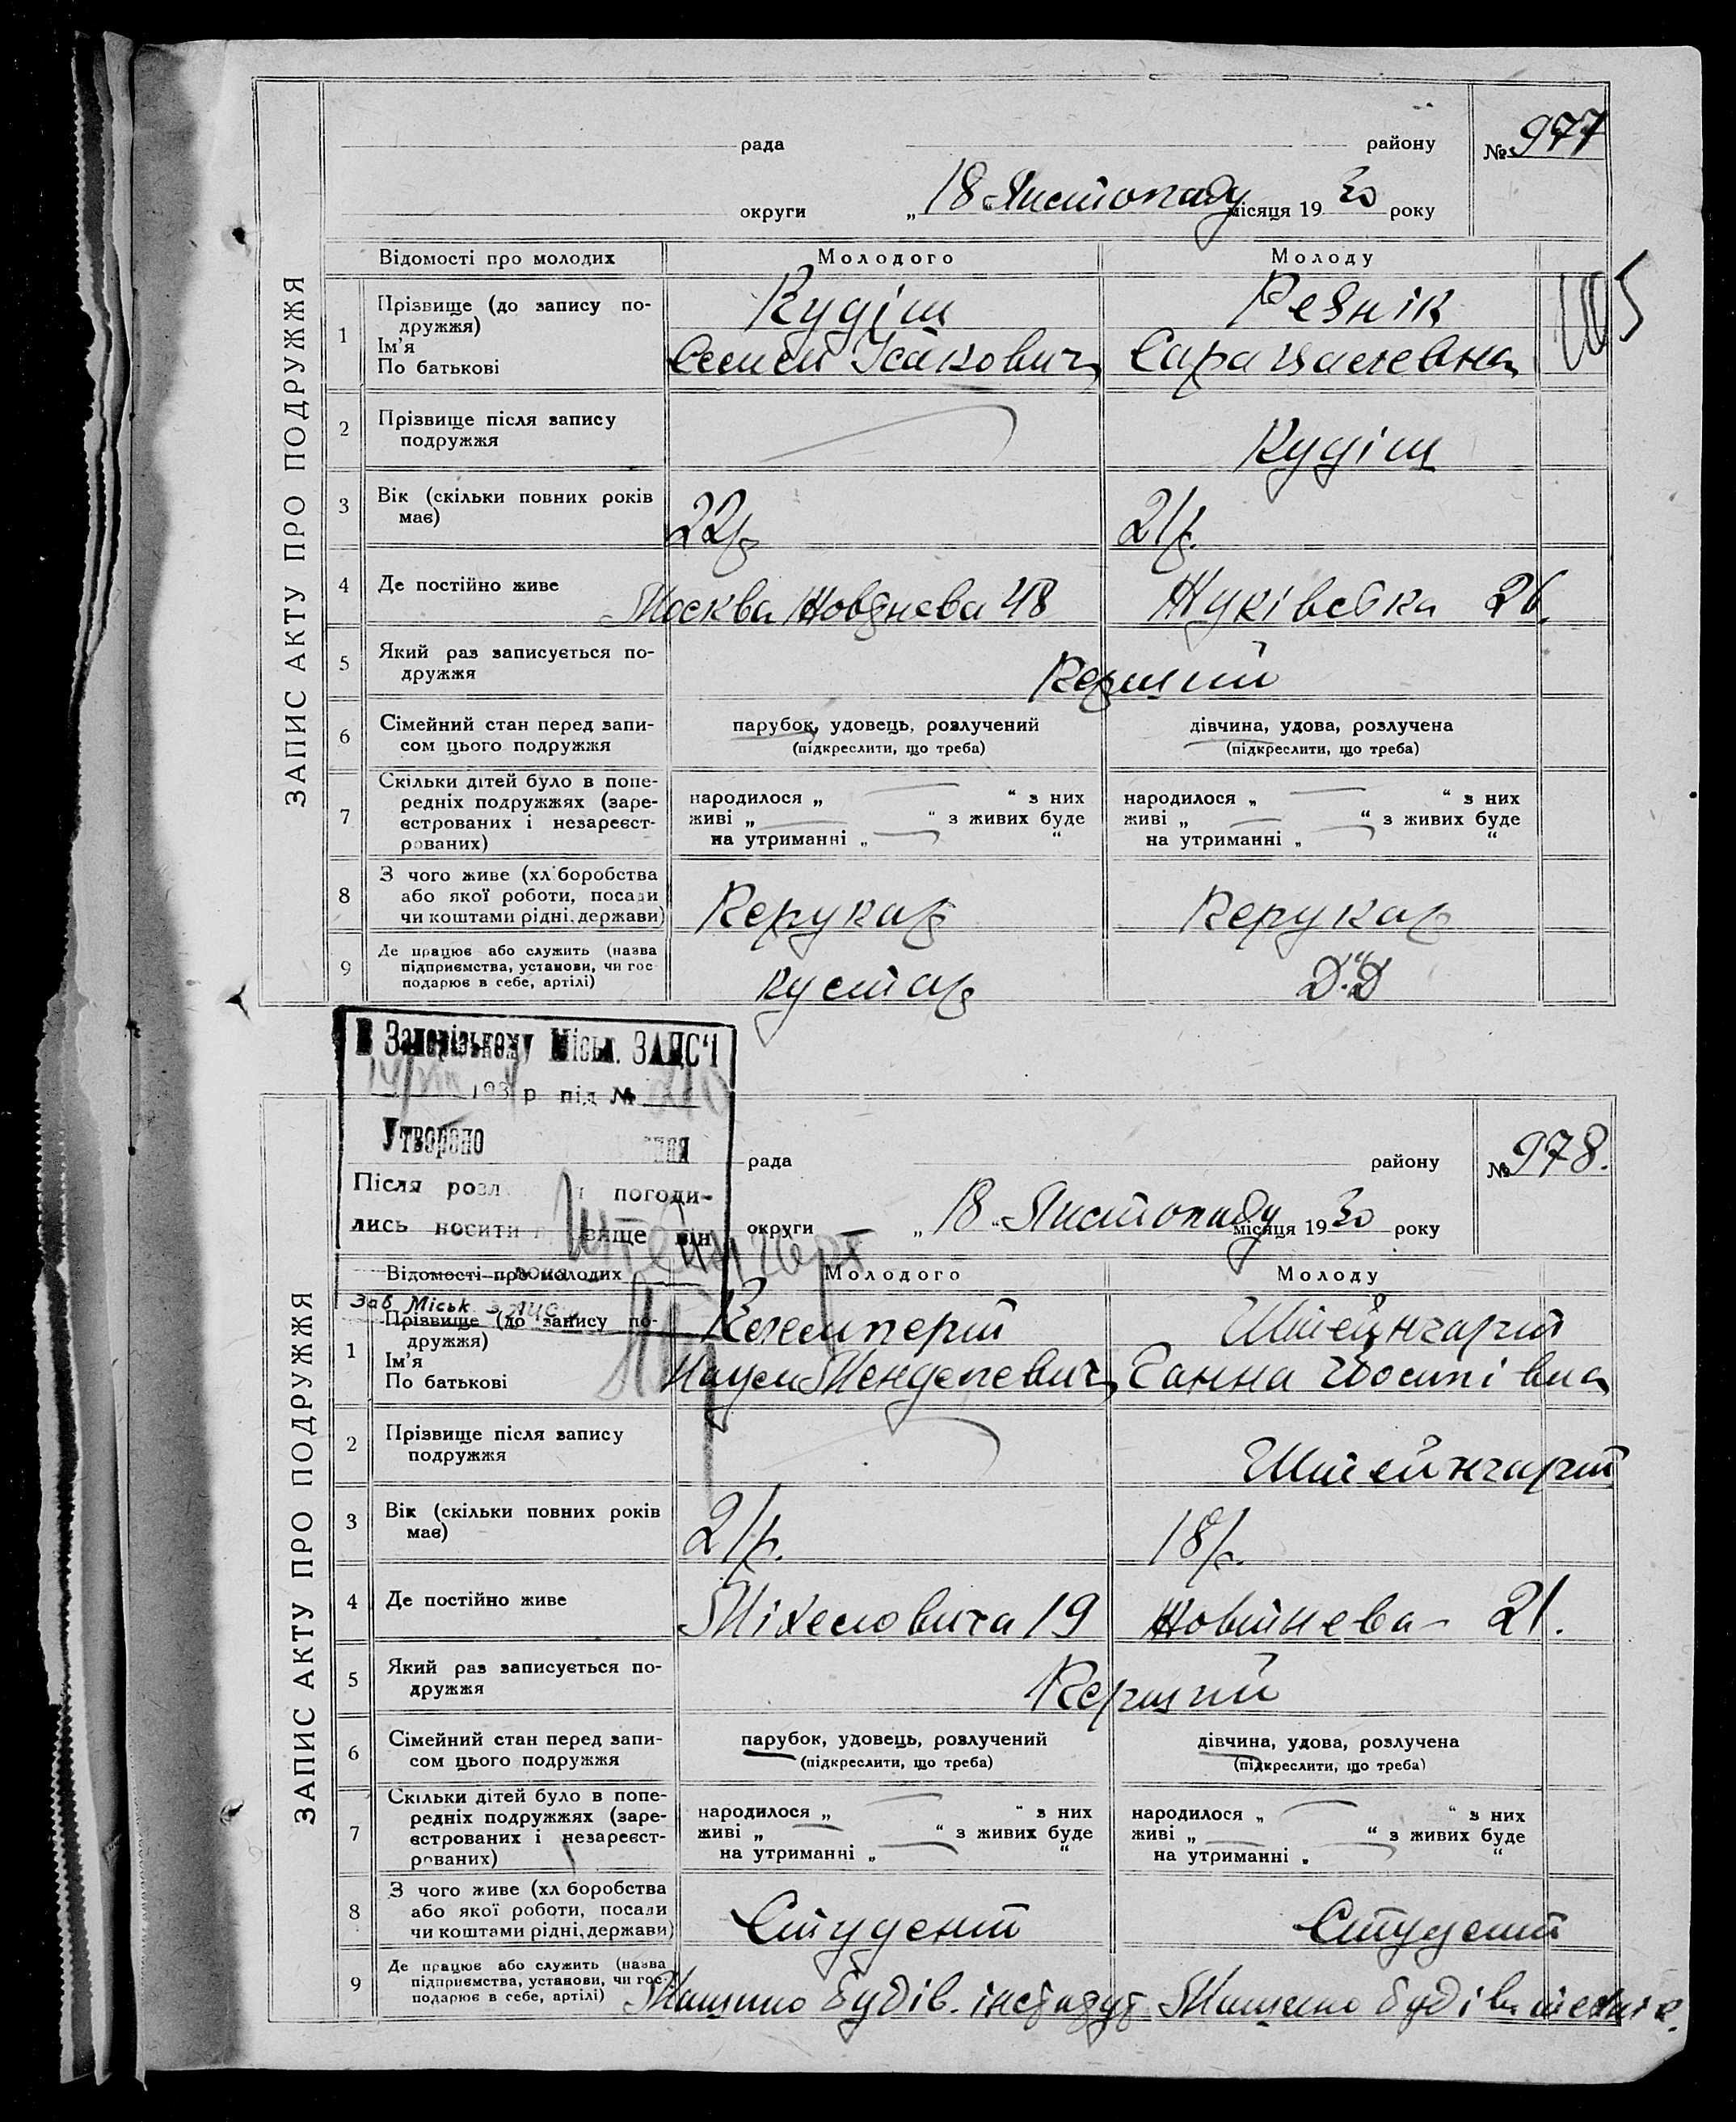 ЗАПИС АКТУ ПРО ПОДРУЖЖЯ
рада района №977
округи „18 Листопаду місяця 1930 року
Відомості про молодих Молодого Молоду
1 Прізвище (до запису по-
дружжя)
Ім'я
По батькові
Кудіш Резнік
Семен Ісакович Сара
105
2 Прізвище після запису
подружжя
Кудіш
3 Вік (скільки повних років
має)
22р 21р.
4 Де постійно живе
Москва Жовтнева 48 26.
5 Який раз записується по-
дружжя
Перший
6 Сімейний стан перед запи-
сом цього подружжя
парубок, удовець, розлучений дівчина, удова, розлучена
(підкреслити, що треба) (підкреслити, що треба)
7 Скільки дітей було в попе-
редніх подружжях (заре-
єстрованих і незареєст-
рованих)
народилося „ “ з них народилося „ “ з них
живі „ “ з живих буде живі „ “ з живих буде
на утриманні „ “ на утриманні „ “
8 З чого живе (хл.боробства
або якої роботи, посади
чи коштами рідні, держави)
Перукар Перукар
9 Де працює або служить (назва
підприємства, установи, чи гос-
подарює в себе, артілі)
кустар Д.Д
В Запорізькому Міськ. ЗАГС'і
193 р під №
Утворено
Після розл погоди-
лись носити він
Зав Міськ
ЗАПИС АКТУ ПРО ПОДРУЖЖЯ
рада району №978.
округи „18 Листопаду місяця 1930 року
Відомості про молодих Молодого Молоду
1 Прізвище (до запису по-
дружжя)
Ім'я
По батькові
Келемперт Штейнгарт
Менделевич Ганна Йосипівна
2 Прізвище після запису
подружжя
Штейнгарт
3 Вік (скільки повних років
має)
21р. 18р.
4 Де постійно живе
Міхеловича 19 Жовтнева - 21.
5 Який раз записується по-
дружжя
Перший
6 Сімейний стан перед запи-
сом цього подружжя
парубок, удовець, розлучений дівчина, удова, розлучена
(підкреслити, що треба) (підкреслити, що треба)
7 Скільки дітей було в попе-
редніх подружжях (заре-
єстрованих і незареєст-
рованих)
народилося „ “ з них народилося „ “ з них
живі „ “ з живих буде живі „ “ з живих буде
на утриманні „ “ на утриманні „ “
8 З чого живе (хл боробства
або якої роботи, посади
чи коштами рідні, держави)
Студент Студент
9 Де працює або служить (назва
підприємства, установи, чи гос-
подарює в себе, артілі)
Машино Будів. інститут Машино будів. технік.